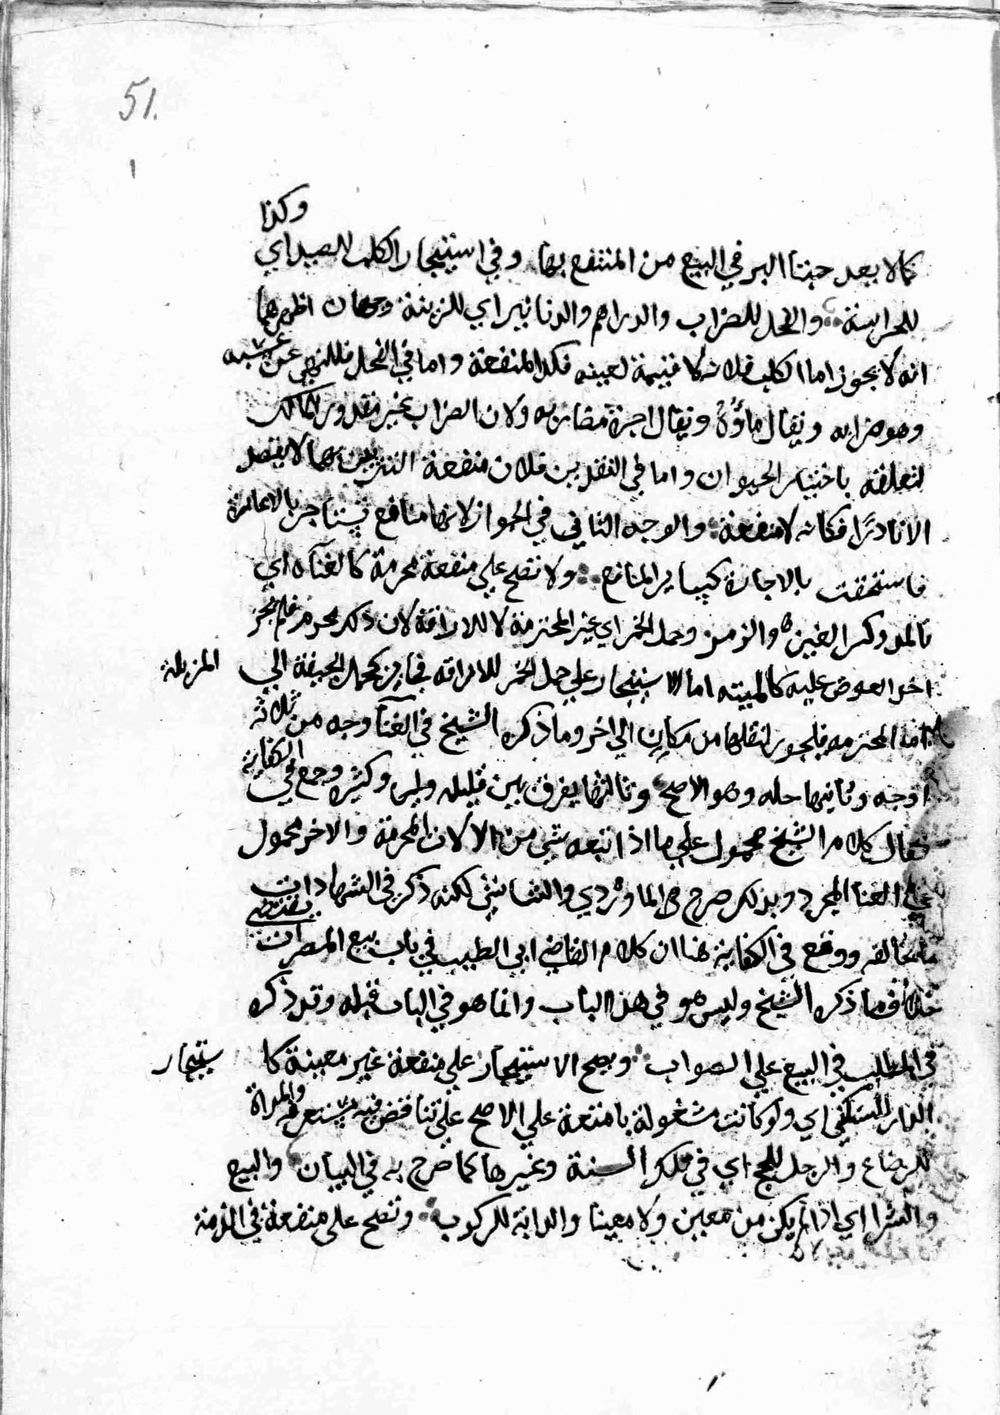 51.
وكذا
كما لا يعد حبتا البر في البيع من المنتفع بها وفي استيجار الكلب للصيد اي
للحراسة والفحل للضراب والدراهم والدنانير اي للزينة وجهان اظهرهما
انه لا يجوز اما الكلب فلانه لا قيمة لعينه فكذا المنفعة واما في الفحل فللنهي عن عسبه
وهو ضرابه ويقال ماؤه ويقال اجرة ضرابه ولان الضراب غير مقدور للمالك
لتعلقه باختيار الحيوان واما في النقدين فلان منفعة التزيين بهما لا يقصد
الا نادرا فكانه لا منفعة والوجه الثاني في الجواز لانها منافع تستباح بالاعارة
فاستحقت بالاجارة كسائر المنافع ولا تصح على منفعة محرمة كالغناء اي
بالمد وكسر الغين والزمر وحمل الخمر اي غير المحترمة لا للاراقة لان ذلك محرم فلم يجز
اخذ العوض عليه كالميته اما الاستيجار على حمل الخمر للاراقه فجايز كحمل الجيفة الى المزبلة
اما المحترمه فيجوز لنقلها من مكان الى اخر وما ذكره الشيخ في الغناء وجه من ثلاثة
اوجه وثانيها حله وهو الاصح وثالثها يفرق بين قليله وكثيره وجمع في الكفاية
فقال كلام الشيخ محمول على ما اذا اتبعه شي من الالات المحرمة والاخر محمول
على الغنا المجرد وبذلك صرح الماوردي والشاشي لكنه ذكر في الشهادات
ما يخالفه ووقع في الكفاية هنا ان كلام القاضي ابي الطيب في باب بيع المصراة يقتضي
خلاف ما ذكره الشيخ وليس هو في هذا الباب وانما هو في الباب قبله وقد ذكره
في المطلب في البيع على الصواب ويصح الاستيجار على منفعة غير معينة كاستيجار
الدار للسكنى اي ولو كانت مشغولة بامتعة على الاصح على تناقض فيه والمراة
للرضاع والرجل للحج اي في تلك السنة وغيرها كما صرح به في البيان والبيع
والشرا اي اذا لم يكن من معين ولا معينا والدابة للركوب وتصح على منفعة في الذمة